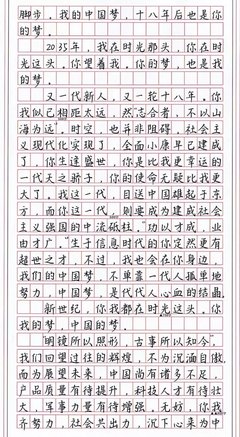 脚步，我的中国梦，十八年后也是你
的梦。
2035年，我在时光那头，你在时
光这头。你望着我，你的梦，也是我
的梦。
又一代新人，又一轮十八年。你
我似已相距太远，然"志合者，不以山
海为远"。时空，也并非阻碍。社会主
义现代化实现了，全面小康早已建成
了，你生逢盛世，你是比我更幸运的
一代天之骄子，你的使命无疑比我更
大了。我这一代，目送中国雄起于东
方，而你这一代，则要成为建成社会
主义强国的中流砥柱。"功以才成，业
由才广。"生于信息时代的你定然更有
超世之才，不过，我也会在你身边，
我们的中国梦，不单靠一代人孤单地
努力，中国梦，是代代人心血的结晶。
新世纪，你我都在时光这头。你
我的梦，中国的梦。
"明镜所以照形，古事所以知今"，
我们回望过往的辉煌，不为沉湎自傲，
而为展望未来，中国尚有诸多不足，
户品质量有待提升，科技人才有待壮
大，军事力量有待增强。无妨，你我
齐努力，社会共出力，沉下心来为中